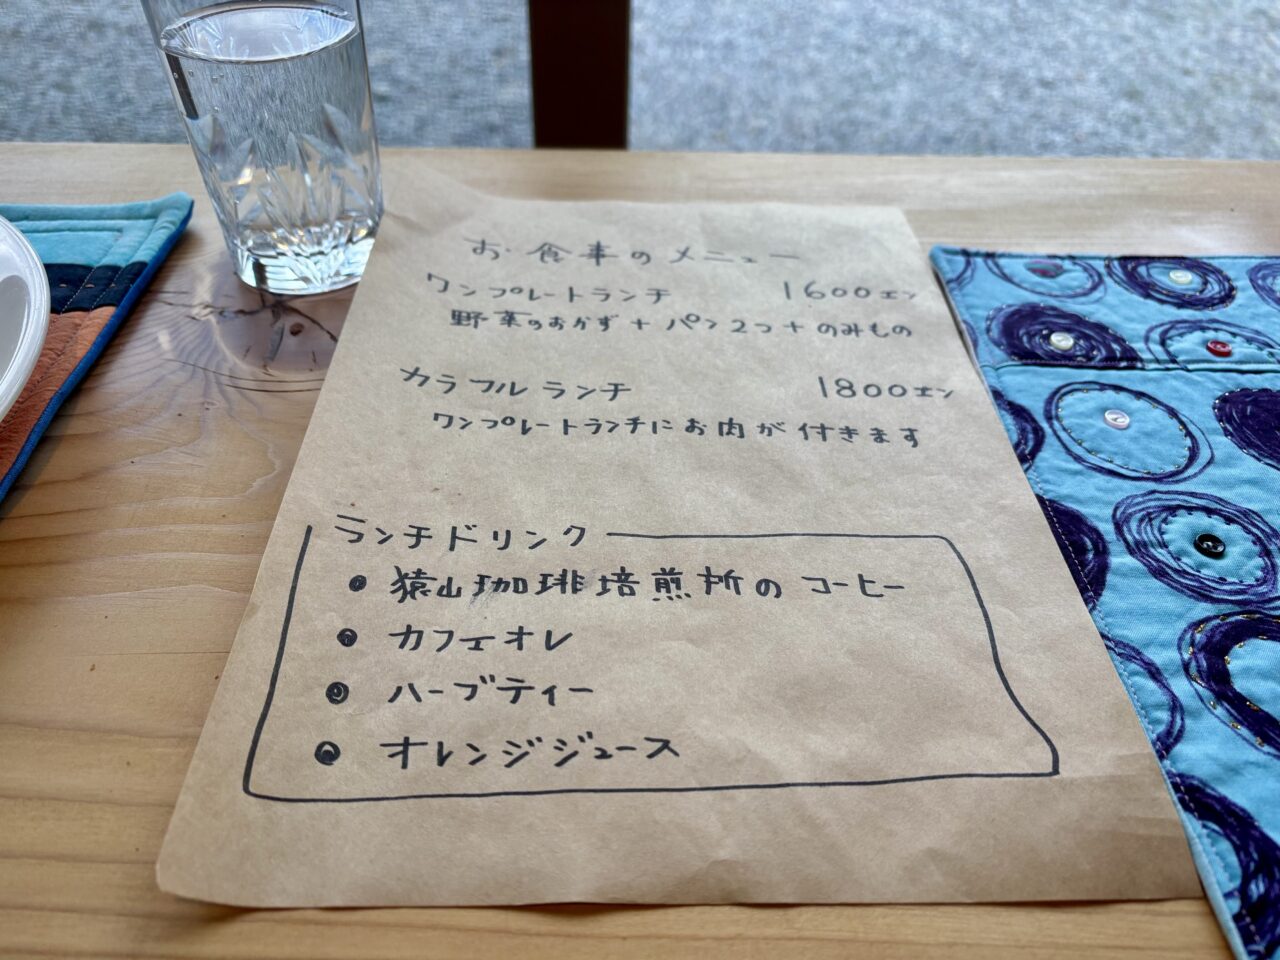 お食事のメニュー
ワンプレートランチ 1600エン
野菜のおかず+パン2つ+のみもの
カラフルランチ 1800エン
ワンプレートランチにお肉が付きます
ランチドリンク
● 猿山珈琲焙煎所のコーヒー
● カフェオレ
● ハーブティー
● オレンジジュース